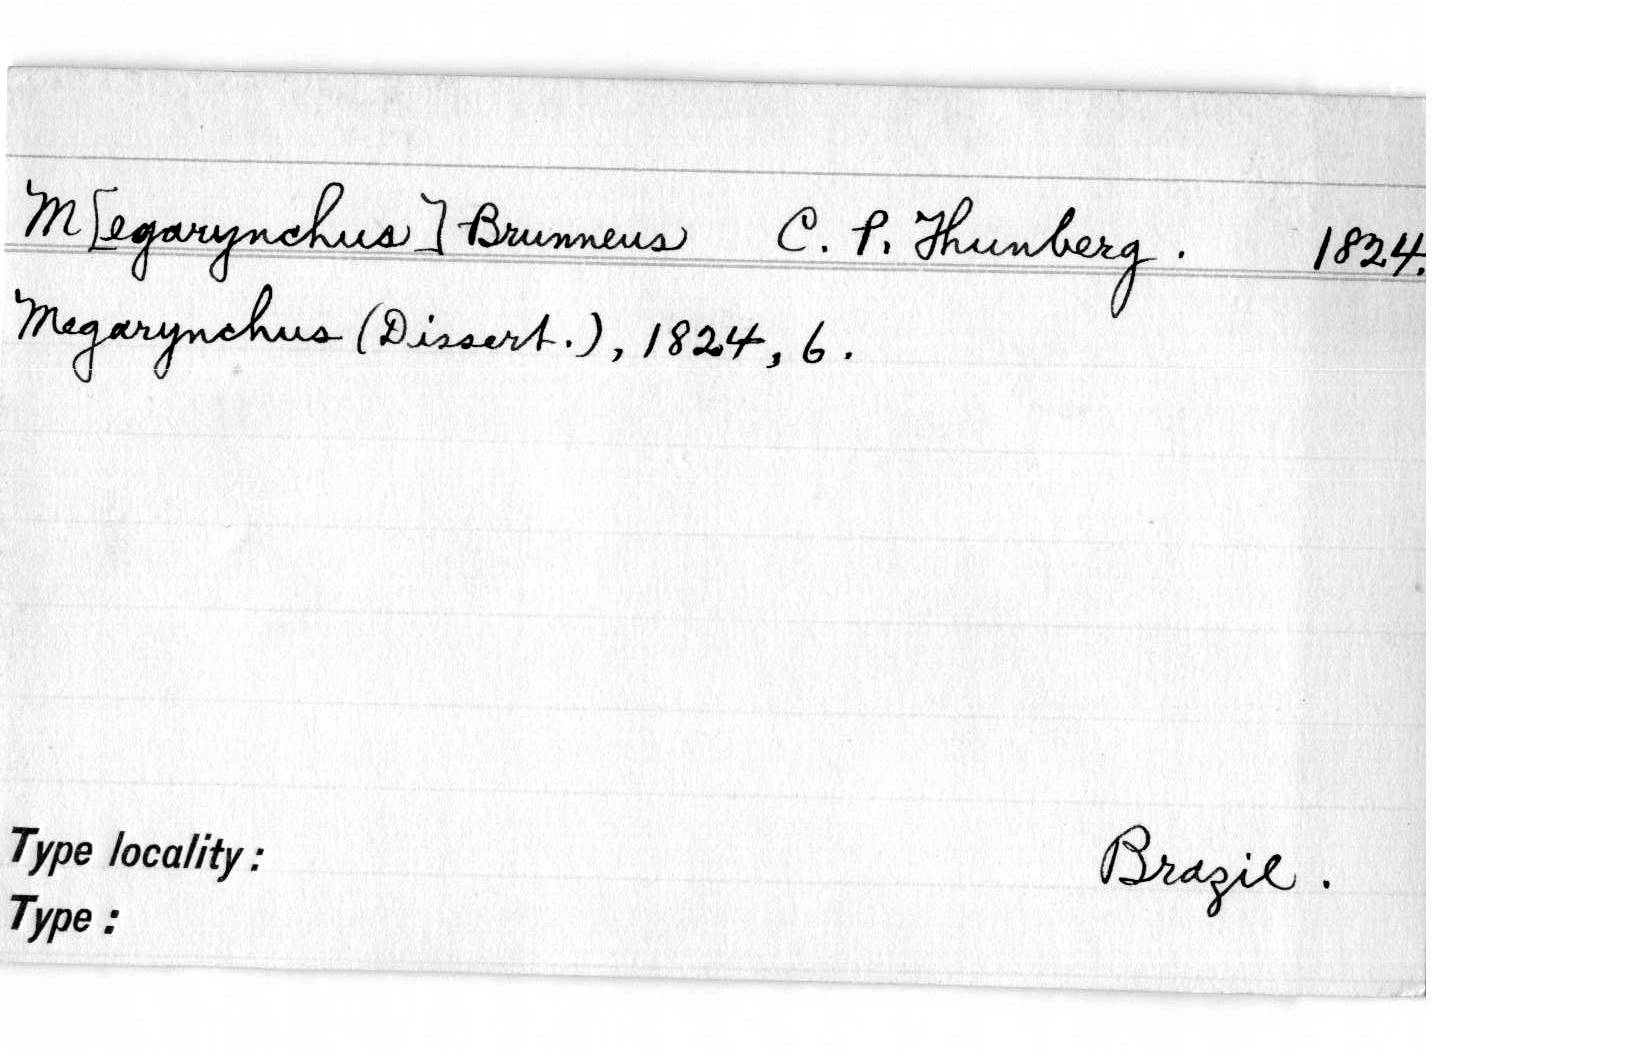 M[egarynchus] Brunneus C. P. Thunberg. 1824.
Megarynchus (Dissert.), 1824, 6.
Type locality: Brazil.
Type: